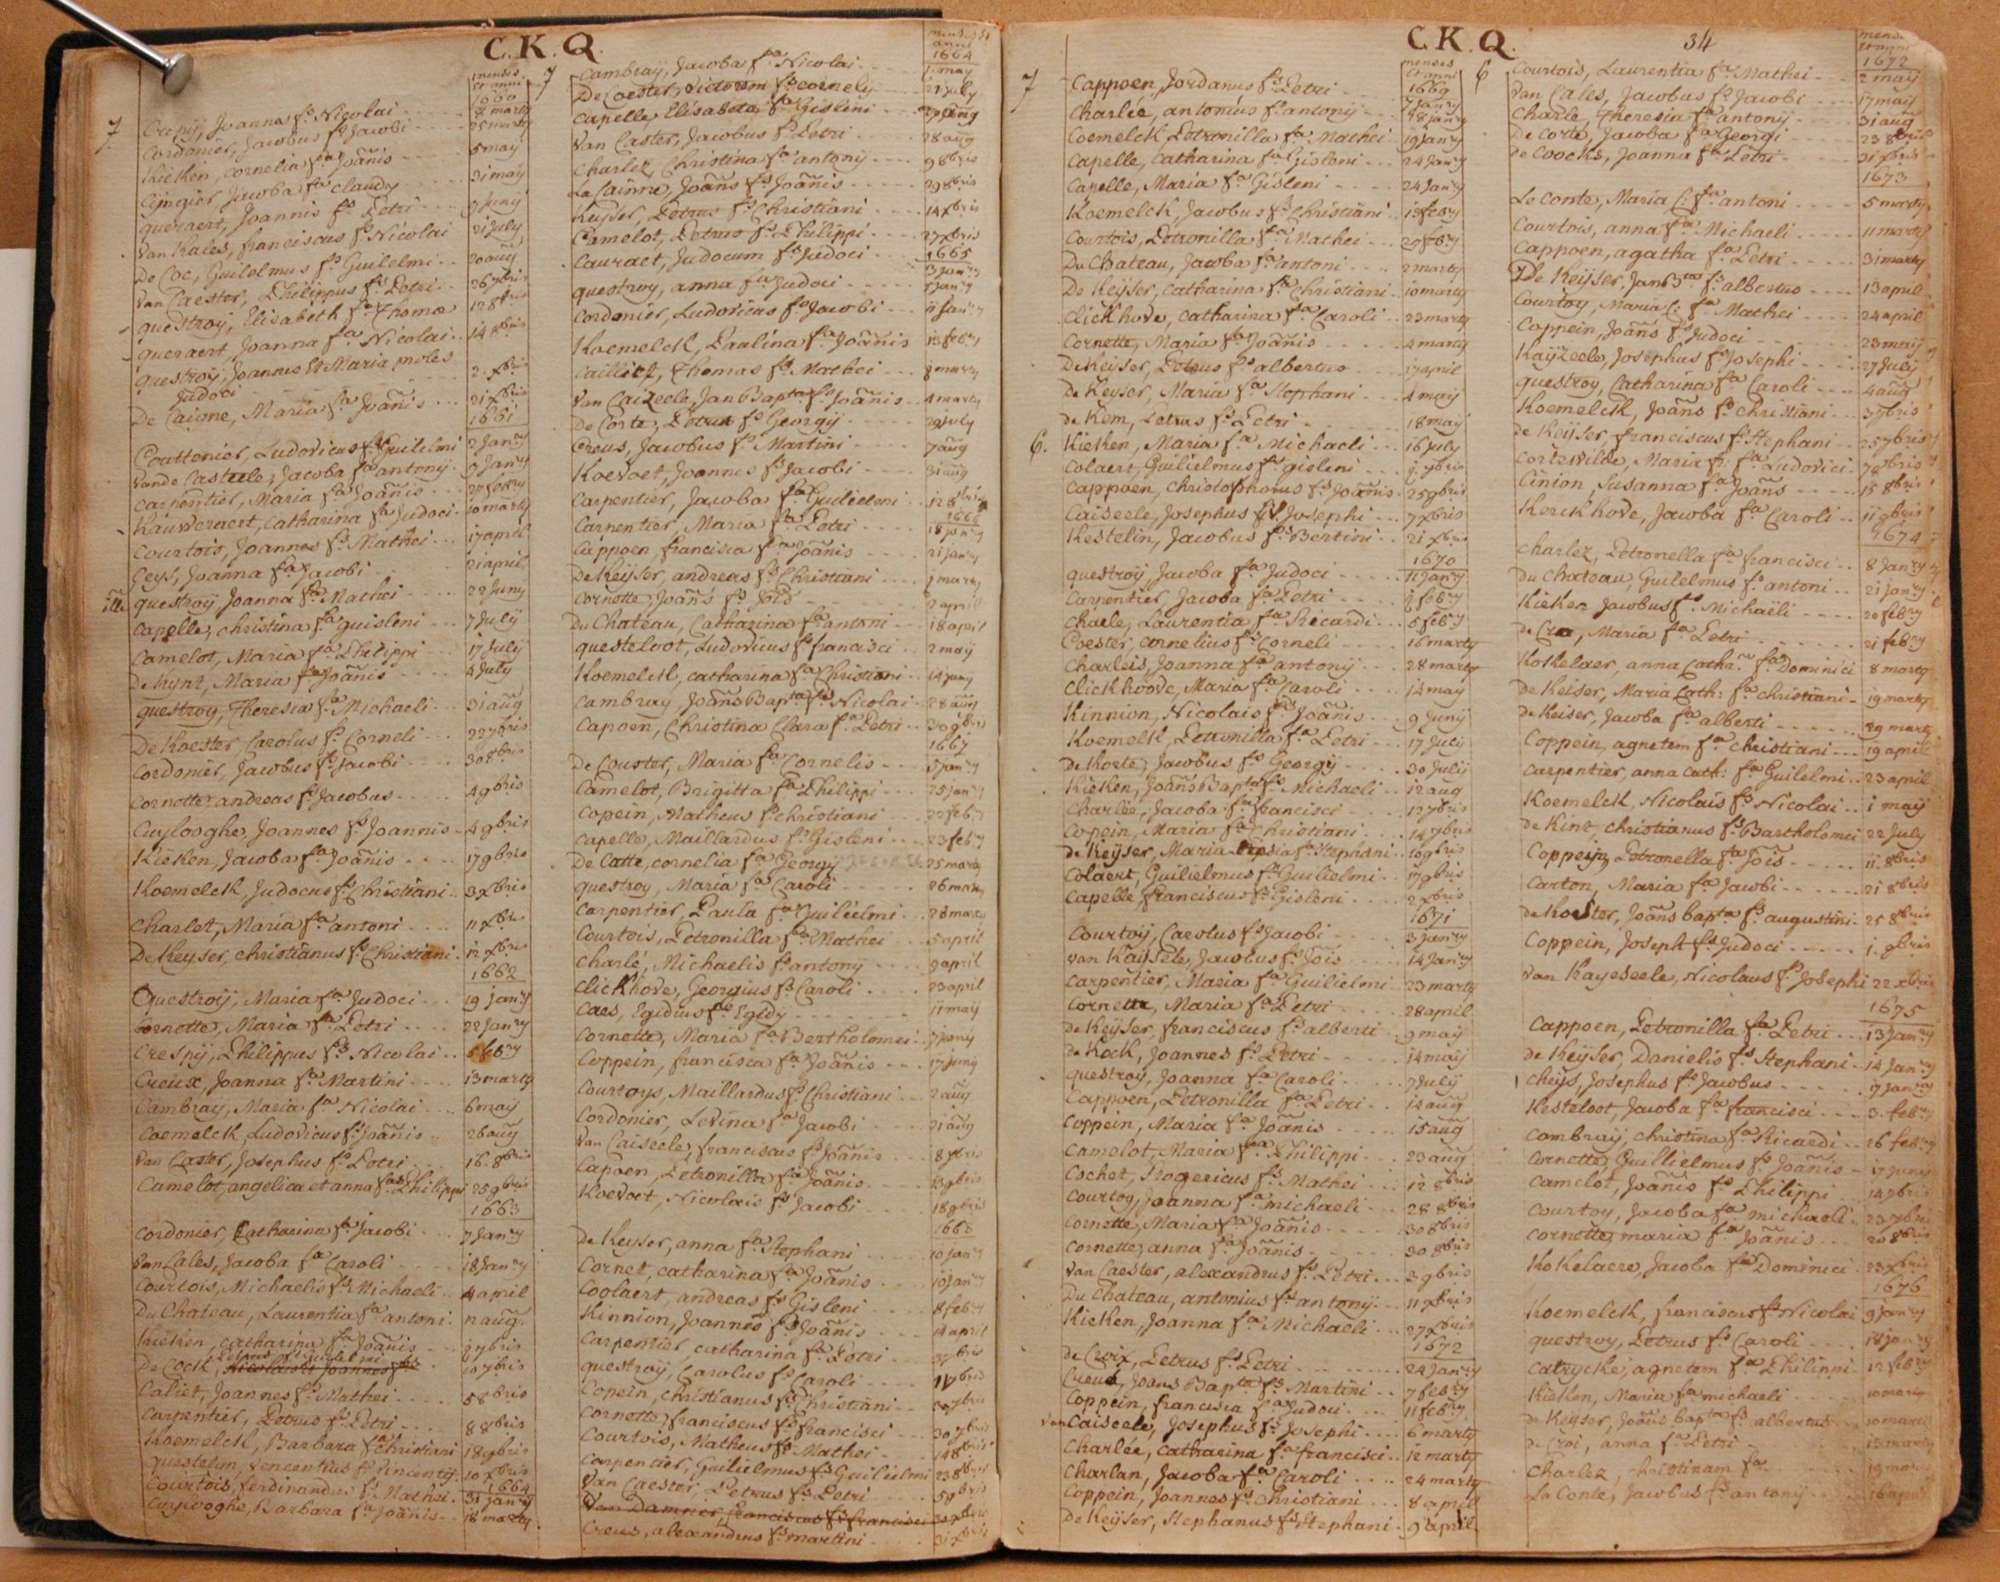 C. K. Q.
menses
et anni
1660
7 Crepij, Joanna fa Nicolai
Cordonier, Jacobus fs Jacobi 25 marty
Kieken, Cornelia fa Joãnis 5 maÿ
Jacoba fa Claudy 31 maÿ
queraert, Joannis fs Petri 7 Junÿ
Van Kales, franciscus fs Nicolai 21 July
De Coc, Guilelmus fs Guilelmi 20 aug
Van Caester, Philippus fs Petri 26 7bris
questroÿ, Elisabeth fa Thomæ 12 8bris
queraert, Joanna fa Nicolai 14 8bris
questroÿ, Joannes et Maria proles
Judoci 2 xbris
De Caigne, Maria fa Joãnis 21 xbris
1661
Ludovicus fs Guilelmi 2 Janry
Vande Casteele, Jacoba fa antony 9 Janry
Carpentier, Maria fa Joãnis 27 febry
Kauweraert, Catharina fa Judoci 10 marty
Courtois, Joannes fs Mathei 17 april
Ceys, Joanna fa Jacobi 21 april
questroÿ Joanna fa Mathei 22 Juny
Capelle, Christina fa guisleni 7 July
Camelot, Maria fa Philippi 17 July
Maria fa Joãnis 4 July
questroy, Theresia fa Michaeli 31 aug
De Koester, Carolus fs Corneli 22 7bris
Cordonier, Jacobus fs Jacobi 30 8bris
Cornette, andreas fs Jacobus 4 9bris
Cuylooghe, Joannes fs Joannis 4 9bris
Kieken, Jacoba fa Joãnis 17 9bris
Koemelck, Judocus fs Christiani 3 xbris
Charlet, Maria fa antoni 11 xbris
De Keyser, christianus fs Christiani 12 xbris
1662
Questroÿ, Maria fa Judoci 19 Janry
Cornette, Maria fa Petri 22 Janry
Crespij, Philippus fs Nicolai 5 febry
Creux, Joanna fa Martini 13 marty
Cambray, Maria fa Nicolai 6 may
Coemelck, Ludovicus fs Joãnis 26 aug
Van Caster, Josephus fs Petri 16 8bris
Camelot, angelica et anna fae Philippi 25 9bris
1663
Cordonier, Catharina fa Jacobi 7 Janry
Van Cales, Jacoba fa Caroli 18 Janry
Courtois, Michaelis fs Michaeli 4 april
Du Chateau, Laurentia fa antoni 11 aug
Kieken, Catharina fa Joãnis 2 7bris
De Cock, 20 7bris
Caliet, Joannes fs Mathei 5 8bris
Carpentier, Petrus fs Petri 8 8bris
Koemelck, Barbara fa Christiani 18 9bris
questelin, Vincentius fs Vincenty 20 xbris
1664
Courtois, ferdinandus fs Mathei 31 Janry
Cuyvooghe, Barbara fa Joãnis 18 marty
menses et
anni
1664
7 Cambraÿ, Jacoba fa Nicolai 1 may
De Coester, Victorem fs Cornely 21 July
Capelle Elisabeta fa Gisleni 27 aug
Van Caster, Jacobus fs Petri 28 aug
Charlez, Christina fa antony 9 8bris
Joãns fs Joãnis 29 8bris
Keyser, Petrus fs Christiani 14 xbris
Camelot, Petrus fs Philippi 27 xbris
1665
Cauraet, Judocum fs Judoci 3 Janry
questroy, anna fa Judoci Janry
Cordonier, Ludovicus fs Jacobi 11 Janry
Koemelck, Paulina fa Joãnis 13 febry
Thomas fs Mathei 8 marty
Van Caizeele, Jan Bapta fs Joãnis 4 marty
De Corte, Petrus fs Georgÿ 29 July
Creus, Jacobus fs Martini 7 aug
Koevoet, Joannes fs Jacobi 31 aug
Carpentier, Jacoba fa Guilielmi 12 8bris
1666
Carpentier, Maria fa Petri 18 Janry
Cappoen, francisca fa Joãnis 21 Janry
De Keyser, andreas fs Christiani 1 marty
Cornette, Joãns fs 2 april
Du Chateau, Catharina fa antoni 18 april
questeloot, Ludovicus fs francisci 2 maÿ
Koemelck, catharina fa Christiani 14 Juny
Cambray, Joãns Bapta fs Nicolai 28 aug
Capoen, Christina Clara fa Petri 20 9bris
1667
De Couster, Maria fa Cornelis Janry
Camelot, Brigitta fa Philippi 23 Janry
Copein, Matheus fs christiani 22 febry
Capelle, Maillardus fs Gisleni 23 febry
De Catte, cornelia fa Georgy 25 marty
questroy, Maria fa Caroli 26 marty
Carpentier, Paula fa Guilielmi 28 marty
Courtois, Petronilla fa Mathei 5 april
Charlé, Michaelis fs antony 9 april
Clickhove, Georgius fs Caroli 23 april
Caes, Egidius fs Egidy 11 maÿ
Cornette, Maria fa Bertholomei 7 Juny
Coppein, francisca fa Joãnis 17 Juny
Courtoys, Maillardus fs Christiani 2 aug
Cordonier, Levina fa Jacobi 21 aug
Van Caiseele, franciscus fs Joãnis 8 7bris
Capoen, Petronilla fa Joãnis 13 9bris
Koevoet, Nicolais fs Jacobi 18 9bris
1668
De Keyser, anna fa Stephani 10 Janry
Cornet, catharina fa Joãnis 10 Janry
Coolaert, andreas fs Gisleni 8 febry
Kinnion, Joannes fs Joãnis 14 april
Carpentier, catharina fa Petri
questroÿ, Carolus fs Caroli
Copein, christianus fs Christiani
Cornette, franciscus fs francisci 30 7bris
Courtois, Matheus fs Mathei 14 8bris
Carpentier, Guilielmus fs Guilielmi 23 8bris
Van Caester, Petrus fs Petri 5 9bris
Van Damner, franciscus fs francisci
Creus, alexandrus fs martini 31 xbris
C. K. Q. 34
menses
et anni
1669
7 Cappoen, Jordanus fs Petri 7 Janry
Charlée, antonius fs antonÿ 18 Janry
Coemelck Petronilla fa Mathei 19 Janry
Capelle, Catharina fa Gisleni 24 Janry
Capelle, Maria fa Gisleni 24 Janry
Koemelck, Jacobus fs Christiani 18 febry
Courtois, Petronilla fa Mathei 27 febry
Du Chateau, Jacoba fa antoni 2 marty
De Keÿser, catharina fa Christiani 10 marty
Clickhove, catharina fa Caroli 23 marty
Cornette, Maria fa Joãnis 4 marty
De Keÿser, Petrus fs albertus 17 april
De Keÿser, Maria fa Stephani 4 maÿ
de Kem, Petrus fs Petri 18 maÿ
6. Kieken, Maria fa Michaeli 16 July
Colaert, Guilielmus fs gisleni 7bris
Cappoen, Christophorus fs Joãnis 25 9bris
Caiseele, Josephus fs Josephi 7 xbris
Kestelin, Jacobus fs Bertini 21 xbris
1670
questroÿ Jacoba fa Judoci 11 Janry
Carpentier Jacoba fa Petri febry
Chaele, Laurentia fa Ricardi 5 febry
Coester, Cornelius fs Corneli 16 marty
Charleis, Joanna fa antony 28 marty
Clickhoove, Maria fa Caroli 14 maÿ
Kinnion, Nicolais fs Joãnis 9 Junÿ
Koemelk, Petronilla fa Petri 17 July
De Korte, Jacobus fs Georgÿ 30 July
Kieken, Joãns Bapta fs Michaeli 12 aug
Charlée, Jacoba fa francisci 12 7bris
Copein, Maria fa Christiani 14 7bris
de Keÿser, Maria fa Stephani 16 9bris
Colaert, Guilielmus fs Guilielmi 17 9bris
Capelle, franciscus fs Gisleni 2 xbris
1671
Courtoÿ, Carolus fs Jacobi 3 Janry
Van Kaysele, Jacobus fs Jois 14 Janry
Carpentier, Maria fa Guilielmi 23 marty
Cornette, Maria fa Petri 28 april
de Keÿser, franciscus fs alberti 9 maÿ
de Kock, Joannes fs Petri 14 maÿ
questroÿ, Joanna fa Caroli 7 Julÿ
Cappoen, Petronilla fa Petri 14 aug
Coppein, Maria fa Joãnis 15 aug
Camelot, Maria fa Philippi 23 aug
Cochet, Rogericus fs Mathei 12 8bris
Courtoy, Joanna fa michaeli 28 8bris
Cornette, Maria fa Joãnis 30 8bris
Cornette, anna fa Joãnis 30 8bris
Van Caester, alexandrus fs Petri 2 9bris
Du Chateau, antonius fs antony 11 xbris
Kieken, Joanna fa Michaeli 27 xbris
1672
de Croix, Petrus fs Petri 24 Janry
Creux, Joans Bapta fs Martini 7 febry
Coppein, francisca fa Judoci 11 febry
Van Caiseele, Josephus fs Josephi 6 marty
Charlée, Catharina fa francisci 12 marty
Charlan, Jacoba fa Caroli 24 marty
Coppein, Joannes fs Christiani 8 april
de Keÿser, Stephanus fs Stephani 9 april
menses
et anni
1672
6 Courtois, Laurentia fa Mathei 2 maÿ
Van Cales, Jacobus fs Jacobi 17 maÿ
Charle, Theresia fa antony 31 aug
De Corte, Jacoba fa Georgi 23 8bris
de Coocks, Joanna fa Petri 31 xbris
1673
Le Conte, Maria C. fa antoni 5 marty
Courtois, anna fa Michaeli 11 marty
Cappoen, agatha fa Petri 31 marty
De Keÿser, Jan Bta fs albertus 13 april
Courtoy, Maria C: fa Mathei 24 april
Coppein, Joãns fs Judoci 23 maÿ
Kaÿzeele, Josephus fs Josephi 27 July
questroy, Catharina fa Caroli 4 aug
Koemelck, Joãns fs Christiani 3 7bris
de Keijser, franciscus fs Stephani 25 7bris
Cortewilde, Maria fa Ludovici 7 8bris
Cinion Susanna fa Joãns 15 8bris
Kerckhove, Jacoba fa Caroli 11 9bris
1674
Charlez, Petronella fa francisci 8 Janry
Du Chateau, Guilelmus fs antoni 21 Janry
Kieken Jacobus fs Michaëli 20 febry
de Maria fa Petri 21 febry
Kokelaer, anna Catha: fa Dominici 8 marty
De Keiser, Maria Cath: fa christiani 19 marty
de Keiser, Jacoba fa alberti 29 marty
Coppein, agnetem fa christiani 19 april
Carpentier, anna Cath: fa Guilelmi 23 april
Koemelck, Nicolais fs Nicolai 1 maÿ
de Kint, christianus fs Bartholomei 22 July
Coppein, Petronella fa Jois 11 8bris
Carton, Maria fa Jacobi 21 8bris
de Koester, Joãns bapta fs augustini 25 8bris
Coppein, Joseph fs Judoci 1 9bris
Van Kayeseele, Nicolaus fs Josephi 22 xbris
1675
Cappoen, Petronilla fa Petri 13 Janry
de Keÿser, Danielis fs Stephani 14 Janry
Cheys, Josephus fs Jacobus 17 Janry
Kesteloot, Jacoba fa francisci 3 febry
Combraÿ, christina fa Ricardi 26 febry
Cornette, Guillielmus fs Joãnis 17 Juny
Camelot, Joãnis fs Philippi 14 7bris
Courtoy, Jacoba fa michaeli 23 7bris
Cornette, maria fa Joãnis 20 8bris
Kokelaere, Jacoba fa Dominici 23 xbris
1676
Koemelck, franciscus fs Nicolai 9 Janry
questroy, Petrus fs Caroli 18 Janry
Catrycke, agnetem fa Philippi 12 febry
Kieken, Maria fa michaeli 10 marty
de Keyser, Joãns bapta fs albertus 10 marti
de Croi, anna fa Petri 13 marty
Charlez, christinam fa 19 marty
La Conte, Jacobus fs antony 16 april